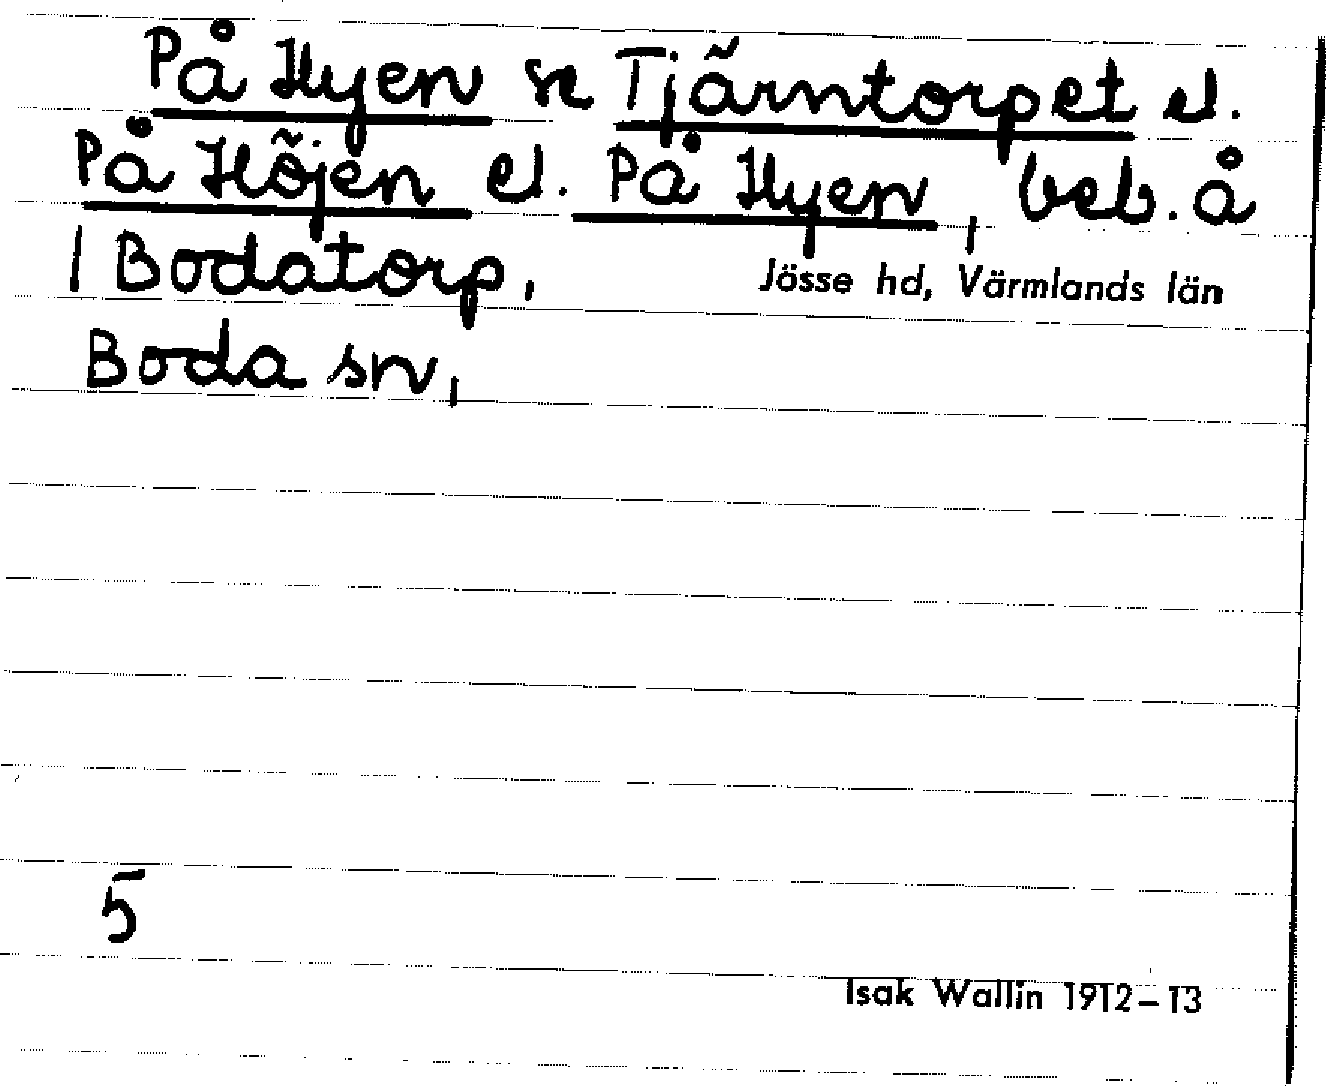 På Hyen se Tjärntorpet el.
På Höjen el. På Hyen, beb. å
1 Bodatorp,
Jösse hd, Värmlands län
Boda sn,
5
Isak Wallin 1912-13